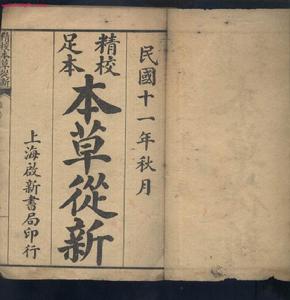 民國十一年秋月
精校
足本
本草從新
上海啟新書局印行
精校本草從新